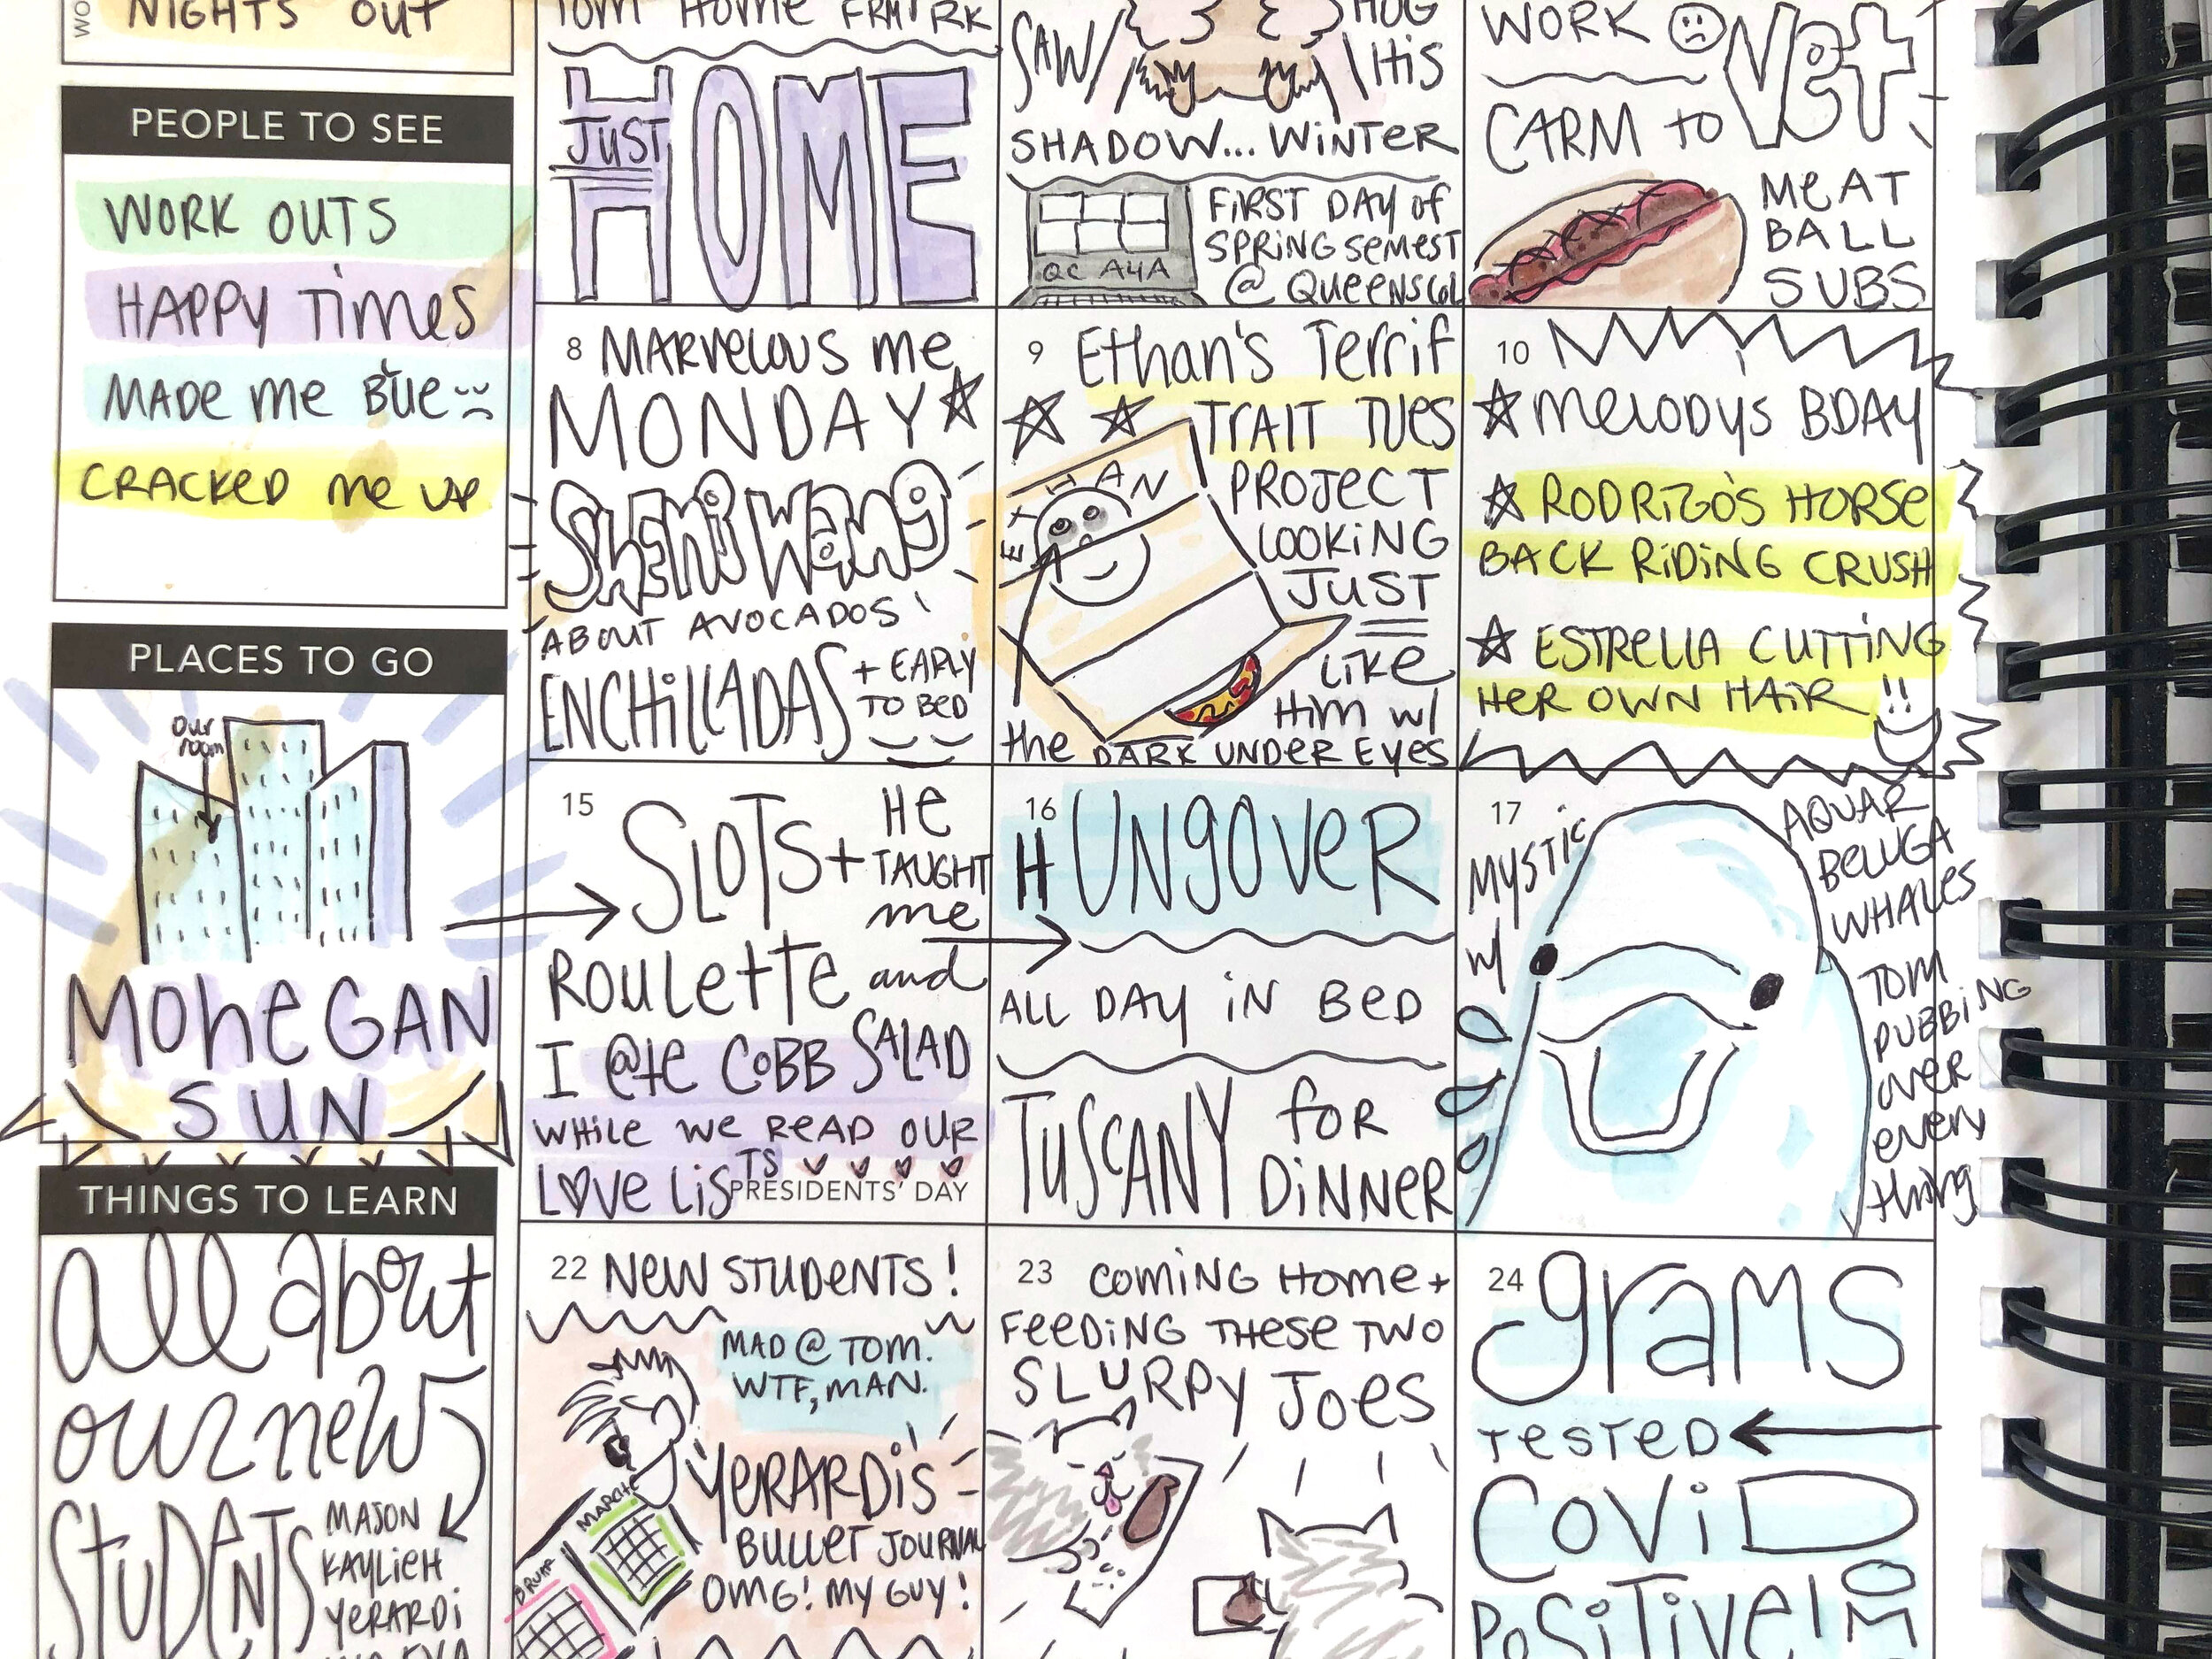 NIGHTS OUT
PEOPLE TO SEE
WORK OUTS
HAPPY TIMES
MADE ME BLUE
CRACKED ME UP
PLACES TO GO
OUR
ROOM
MOHEGAN
SUN
THINGS TO LEARN
all about
our new
STUDENTS
MASON
KAYLIEH
YERARDI
TOM HOME FRM
JUST
HOME
SAW
HUG
HIS
SHADOW... WINTER
QC A4A
FIRST DAY OF
SPRING SEMEST
@ QUEENSCOL
WORK
CARM TO
VET
MEAT
BALL
SUBS
8
MARVELOUS ME
MONDAY
SHENI WANG
ABOUT AVOCADOS
ENCHILLADAS
+ EARLY
TO BED
9
ETHAN'S TERRIF
TRAIT TUES
ETHAN
PROJECT
LOOKING
JUST
LIKE
HIM W/
THE DARK UNDER EYES
10
MELODYS BDAY
RODRIGO'S HORSE
BACK RIDING CRUSH
ESTRELLA CUTTING
HER OWN HAIR !!
15
SLOTS +
HE
TAUGHT
ME
ROULETTE and
I @TE COBB SALAD
WHILE WE READ OUR
LOVE LISTS
PRESIDENTS' DAY
16
HUNGOVER
ALL DAY IN BED
TUSCANY FOR
DINNER
17
MYSTIC
W/
AQUAR
BELUGA
WHALES
TOM
PUBBING
OVER
EVERY
THING
22
NEW STUDENTS!
MAD @ TOM.
WTF, MAN.
MARCH
YERARDI'S
BULLET JOURNAL
OMG! MY GUY!
23
COMING HOME +
FEEDING THESE TWO
SLURPY JOES
24
GRAMS
TESTED
COVID
POSITIVE!